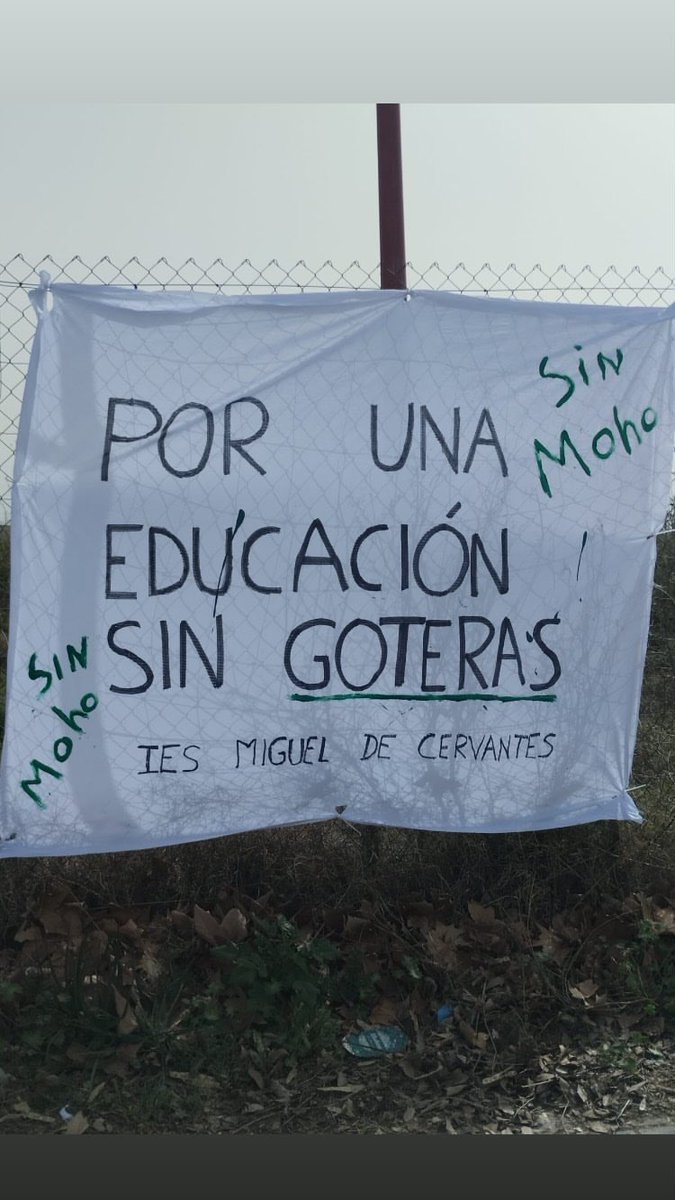 POR UNA
EDUCACIÓN
SIN GOTERAS
IES MIGUEL DE CERVANTES
Sin
Moho
SIN
Moho